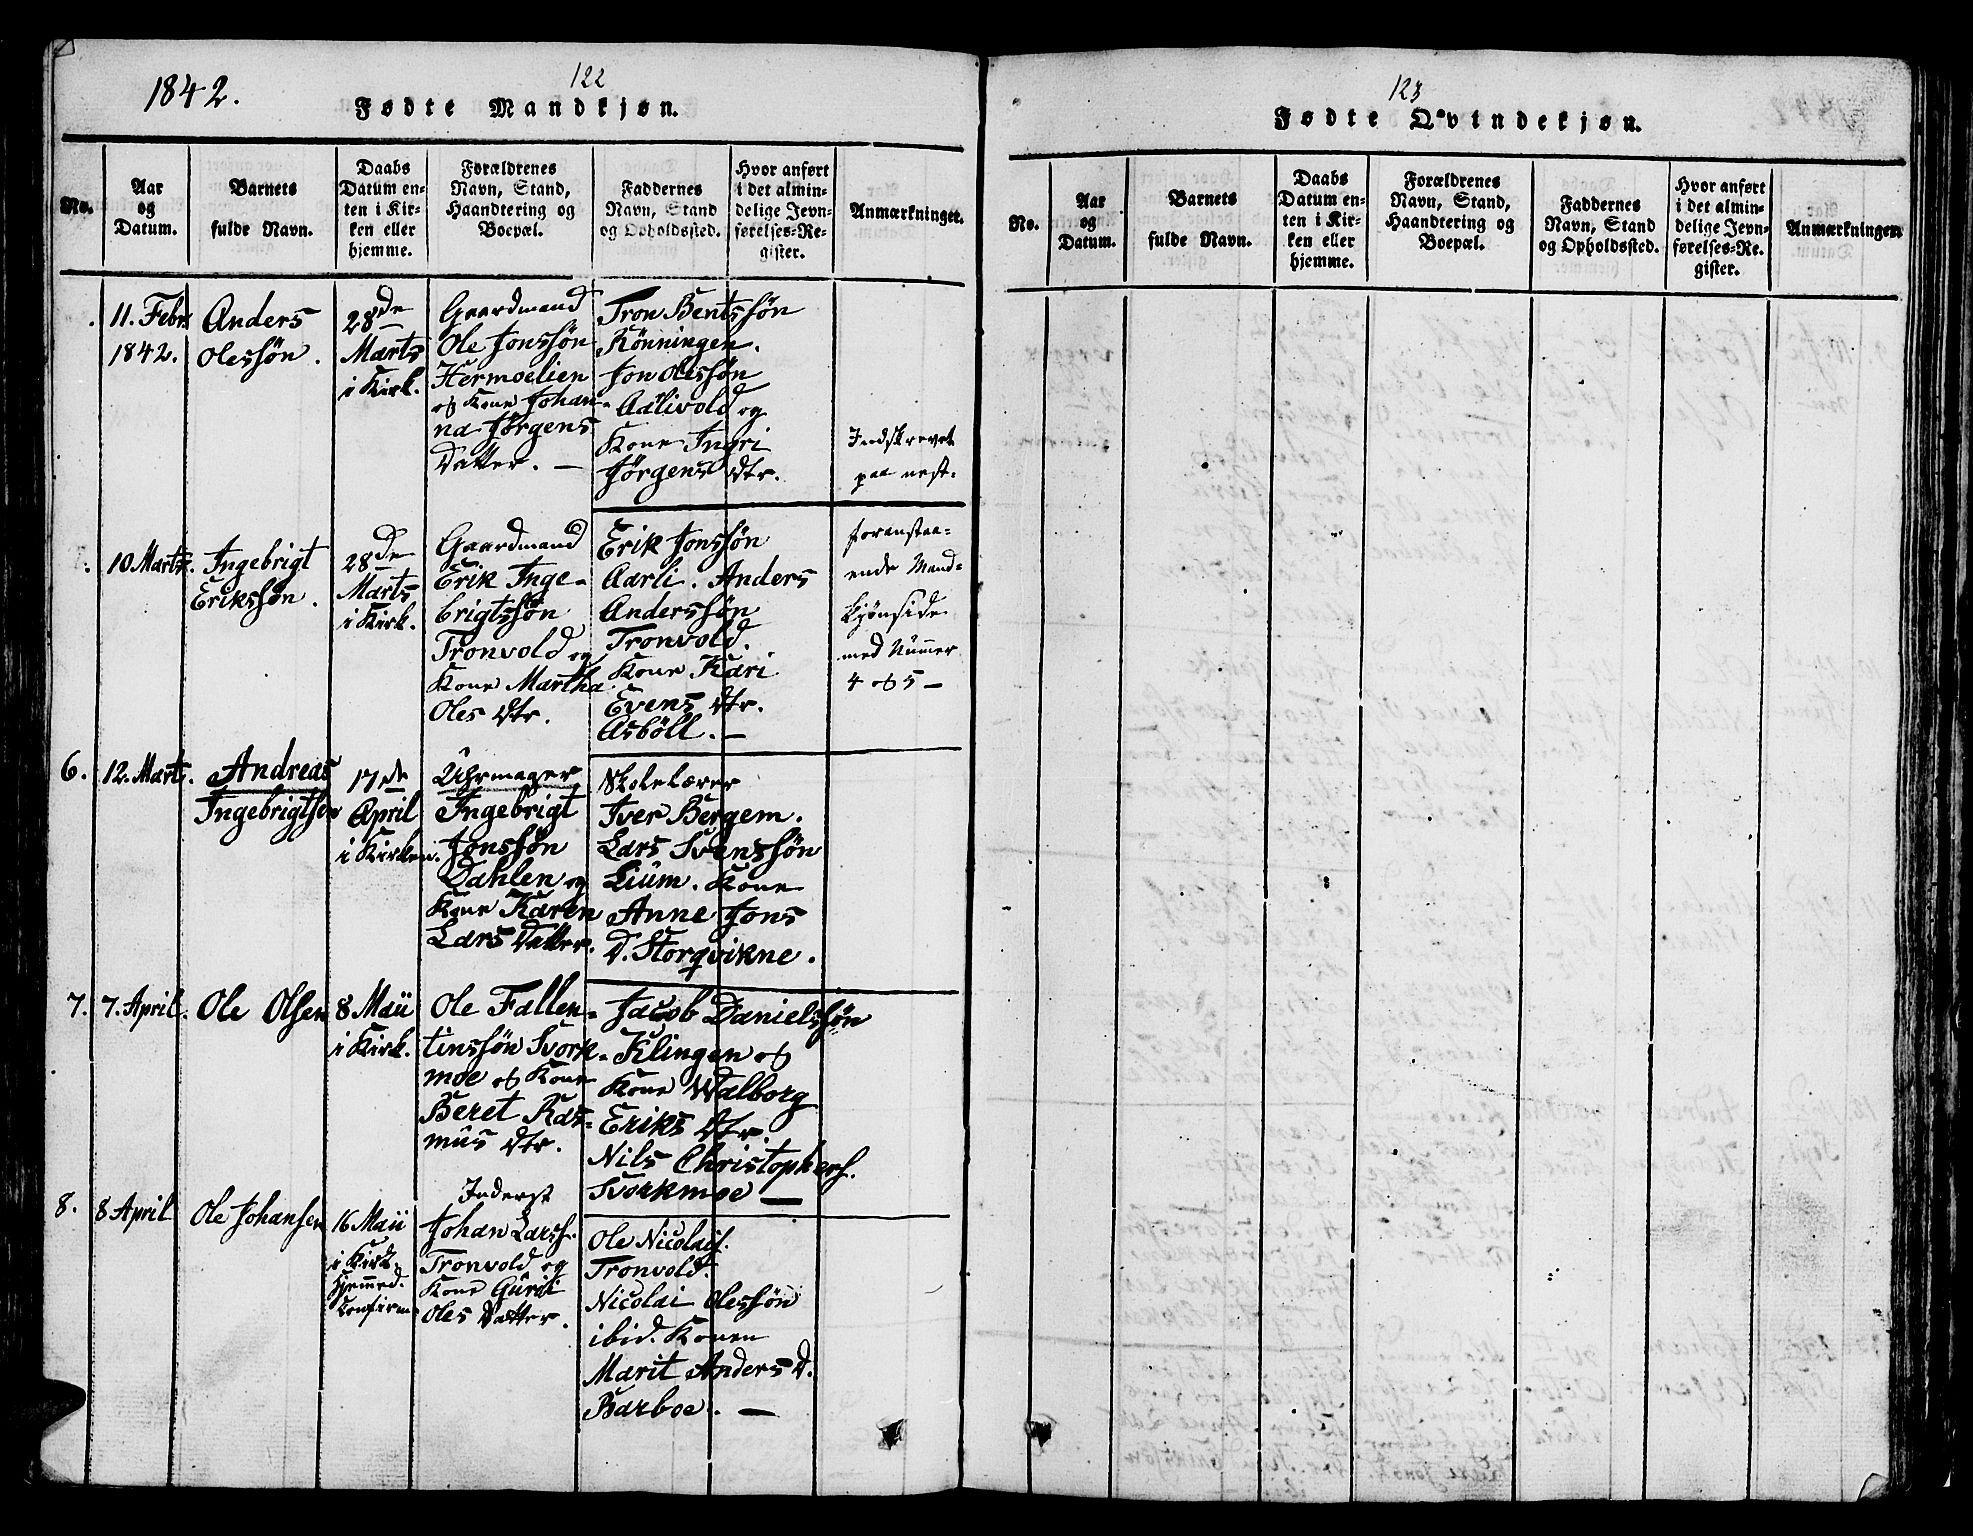 1842.
122
Fødte Mandkjøn.
No.
Aar
og
Datum.
Barnets
fulde Navn.
Daabs
Datum en-
ten i Kir-
ken eller
hjemme.
Forældrenes
Navn, Stand,
Haandtering og
Boepæl.
Faddernes
Navn, Stand
og Opholdssted.
Hvor anført
i det almin-
delige Jevn-
førelses-Re-
gister.
Anmærkninger.
11. Febr.
1842.
Anders
Olessøn.
28de
Marts
i Kirk.
Gaardmand
Ole Jonssøn
Hermoelien
og Kone Johan-
na Jørgens
Datter. —
Tron Bentssøn
Rönningen.
Jon Olessøn
Aalivold og
Kone Ingri
Jörgens Dtr.
Indskrevet
paa nest-
foranstaa-
ende Mand-
kjønside
med Nümer
4 og 5 —
10 Marts.
Ingebrigt
Erikssøn.
28de
Marts
i Kirk.
Gaardmand
Erik Inge-
brigtssøn
Tronvold og
Kone Martha
Oles Dtr.
Erik Jonssøn
Aarli. Anders
Anderssøn
Tronvold.
Kone Kari
Evens Dtr.
Asböll. —
6.
12. Marts.
Andreas
Ingebrigtsen
17de
April
i Kirken.
Uhrmager
Ingebrigt
Jonssøn
Dahlen og
Kone Karen
Lars Datter.
Skolelærer
Iver Bergem.
Lars Svenssøn
Lium. Kone
Anne Jons
D. Storqvikne.
7.
7. April.
Ole Olsen
8 Maii
i Kirk.
Ole Fallen-
tinssøn Svork-
moe og Kone
Beret Ras-
mus Dtr.
Jacob Danielssøn
Klingen og
Kone Walborg
Eriks Dtr.
Nils Christophers.
Svorkmoe —
8.
8 April
Ole Johansen
16 Maii
i Kirk.
Hjemmed.
Confirm.
Inderst
Johan Larss.
Tronvold og
Kone Guroi
Oles Datter.
Ole Nicolais.
Tronvold.
Nicolai Olessøn
ibid. Konen
Marit Anders D.
Barboe. —
123
Fødte Qvindekjøn.
No.
Aar
og
Datum.
Barnets
fulde Navn.
Daabs
Datum en-
ten i Kir-
ken eller
hjemme.
Forældrenes
Navn, Stand,
Haandtering og
Boepæl.
Faddernes
Navn, Stand
og Opholdssted.
Hvor anført
i det almin-
delige Jevn-
førelses-Re-
gister.
Anmærkninger